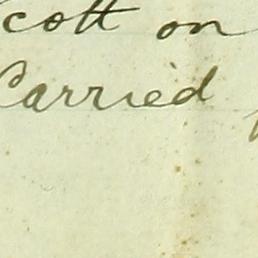 cott on
Carried